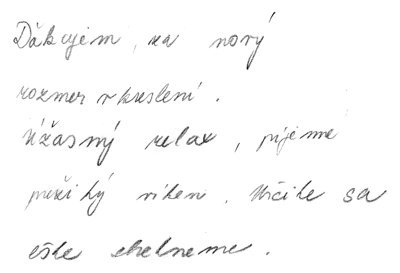 Ďakujem, za nový
rozmer v kreslení.
Úžasný relax, príjemne
prežitý víken. Určite sa
ešte stretneme.